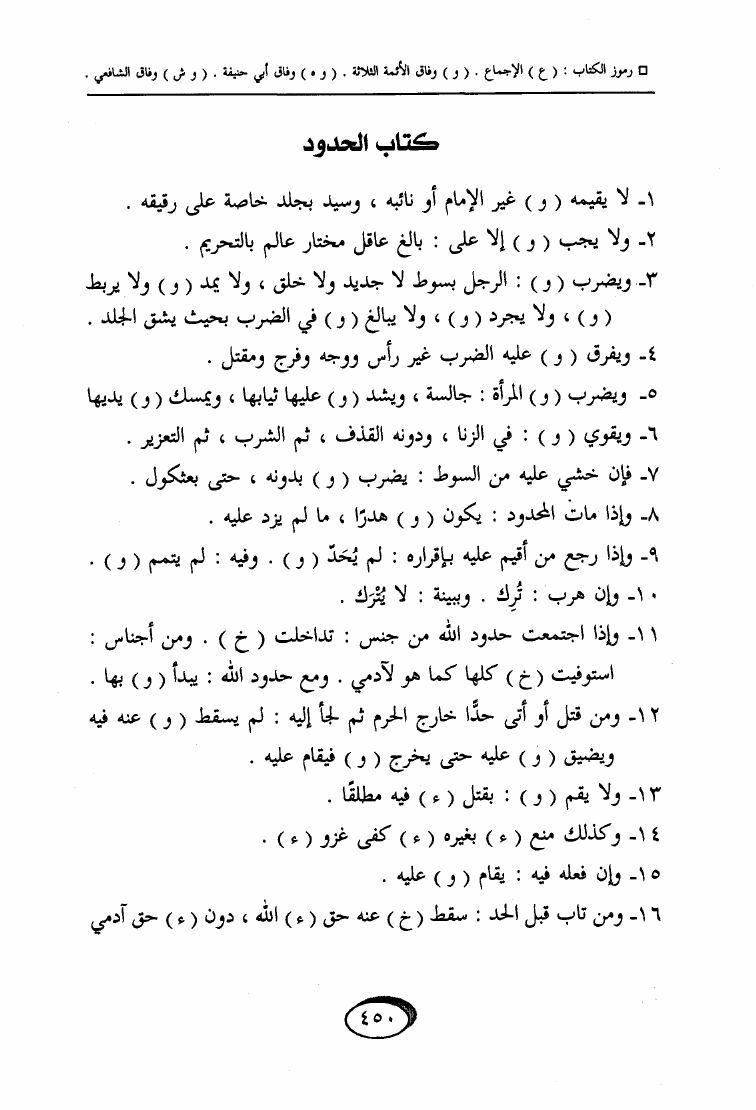 □ رموز الكتاب : ( ع ) الإجماع . ( و ) وفاق الأئمة الثلاثة . ( و ه ) وفاق أبي حنيفة . ( و ش ) وفاق الشافعي .
كتاب الحدود
١- لا يقيمه ( و ) غير الإمام أو نائبه ، وسيد بجلد خاصة على رقيقه .
٢- ولا يجب ( و ) إلا على : بالغ عاقل مختار عالم بالتحريم .
٣- ويضرب ( و ) : الرجل بسوط لا جديد ولا خلق ، ولا يمد ( و ) ولا يربط
( و ) ، ولا يجرد ( و ) ، ولا يبالغ ( و ) في الضرب بحيث يشق الجلد .
٤- ويفرق ( و ) عليه الضرب غير رأس ووجه وفرج ومقتل .
٥- ويضرب ( و ) المرأة : جالسة ، ويشد ( و ) عليها ثيابها ، ويمسك ( و ) يديها
٦- ويقوي ( و ) : في الزنا ، ودونه القذف ، ثم الشرب ، ثم التعزير .
٧- فإن خشي عليه من السوط : يضرب ( و ) بدونه ، حتى بعثكول .
٨- وإذا مات المحدود : يكون ( و ) هدرًا ، ما لم يزد عليه .
٩- وإذا رجع من أقيم عليه بإقراره : لم يُحَدّ ( و ) . وفيه : لم يتمم ( و ) .
١٠- وإن هرب : تُرِك . وببينة : لا يُتْرَك .
١١- وإذا اجتمعت حدود الله من جنس : تداخلت ( خ ) . ومن أجناس :
استوفيت ( خ ) كلها كما هو لآدمي . ومع حدود الله : يبدأ ( و ) بها .
١٢- ومن قتل أو أتى حدًّا خارج الحرم ثم لجأ إليه : لم يسقط ( و ) عنه فيه
ويضيق ( و ) عليه حتى يخرج ( و ) فيقام عليه .
١٣- ولا يقم ( و ) : بقتل ( ء ) فيه مطلقًا .
١٤- وكذلك منع ( ء ) بغيره ( ء ) كفى غزو ( ء ) .
١٥- وإن فعله فيه : يقام ( و ) عليه .
١٦- ومن تاب قبل الحد : سقط ( خ ) عنه حق ( ء ) الله ، دون ( ء ) حق آدمي
٤٥٠